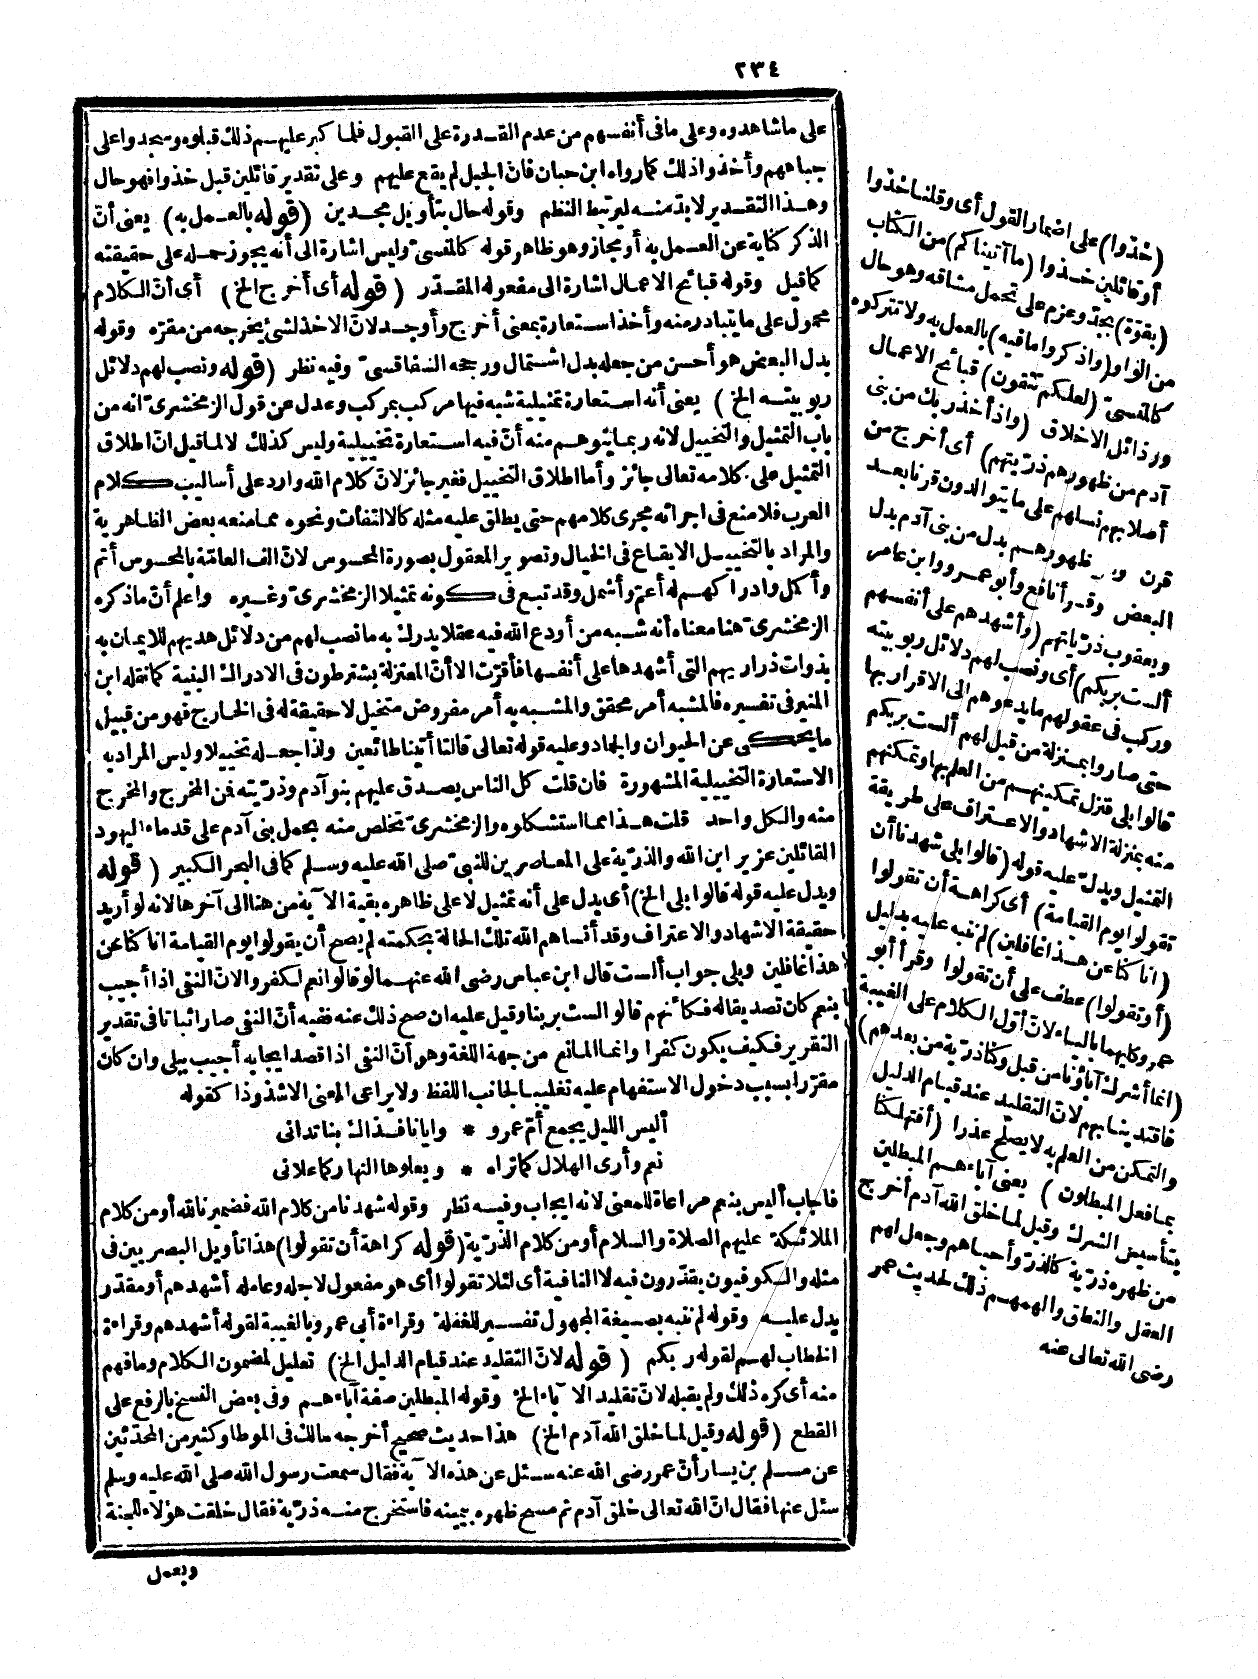 ٢٣٤
على ماشاهدوه وعلى مافى أنفسهم من عدم القـدرة على القبول فلما كبر عليهـم ذلك قبلوه وسجدوا على
جباههم وأخذوا ذلك كما رواه ابن حبان فانّ الجبل لم يقع عليهم وعلى تقدير قائلين قبل خذوا فهو حال
وهـذا التقـدير لابدّ منـه ليرتبط النظم وقوله حال بتأويل مجـدين (قوله بالعـمل به) يعنى أنّ
الذكر كناية عن العـمل به أو مجاز وهو ظاهر قوله كالمنسىّ وليس اشارة الى أنه يجوز حمـله على حقيقته
كما قيل وقوله قبائح الاعمـال اشارة الى مفعوله المقـدّر (قوله أى أخرج الخ) أى أنّ الكلام
محمول على ما يتبادر منه وأخذ استعارة بمعنى أخرج وأوجـد لانّ الاخذ لشئ يخرجه من مقرّه وقوله
بدل البعض هو أحسن من جعله بدل اشتمال ورجحه السفاقسىّ وفيه نظر (قوله ونصب لهم دلائل
ربوبيتـه الخ) يعنى أنه استعارة تمثيلية شبه فيها مركب بمركب وعدل عن قول الزمخشرىّ انه من
باب التمثيل والتخييل لانه ربما يتوهـم منه أنّ فيه استعارة تخييلية وليس كذلك لا لما قيل انّ اطلاق
التمثيل على كلامه تعالى جائز وأما اطلاق التخييل فغير جائز لانّ كلام الله وارد على أساليب كلام
العرب فلا منع فى اجرائه مجرى كلامهم حتى يطلق عليه مثله كالالتفات ونحوه ممـا منعه بعض الظاهرية
والمراد بالتخييـل الايقاع فى الخيال وتصوير المعقول بصورة المحسوس لانّ الف العامّة بالمحسوس أتم
وأكمل وادراكهـم له أعمّ وأشمل وقد تبع فى كونه تمثيلا الزمخشرىّ وغيره واعلم أنّ ما ذكره
الزمخشرىّ هنا معناه أنه شبـه من أودع الله فيه عقلا يدرك به ما نصب لهم من دلائل هديهم للايمان به
بذوات ذراريهم التى أشهدها على أنفسها فأقرّت الا أنّ المعتزلة يشترطون فى الادراك البنية كما نقله ابن
المنير فى تفسيره فالمشبه أمر محقق والمشبه به أمر مفروض متخيل لا حقيقة له فى الخارج فهو من قبيل
ما يحكى عن الحيوان والجماد وعليه قوله تعالى قالتا أتينا طائعين ولذا جعـله تخييلا وليس المراد به
الاستعارة التخييلية المشهورة فان قلت كل الناس يصـدق عليهم بنو آدم وذرّيته فمن المخرج والمخرج
منه والكل واحد قلت هـذا ممـا استشكلوه والزمخشرىّ تخلص منه بحمل بنى آدم على قدماء اليهود
القائلين عزير ابن الله والذرّية على المعاصرين للنبىّ صلى الله عليه وسلم كما فى البحر الكبير (قوله
ويدل عليه قوله قالوا بلى الخ) أى يدل على أنه تمثيل لا على ظاهره بقية الآية من هنا الى آخرها لانه لو أريد
حقيقة الاشهاد والاعتراف وقد أنساهم الله تلك الحالة بحكمته لم يصح أن يقولوا يوم القيامة انا كنا عن
هذا غافلين وبلى جواب ألست قال ابن عباس رضى الله عنهـما لو قالوا نعم لكفروا لانّ النفى اذا أجيب
بنعم كان تصديقا له فكأنهم قالوا لست بربنا وقيل عليه ان صح ذلك عنه ففيه أنّ النفى صار اثباتا فى تقدير
التقرير فكيف يكون كفرا وانما المانع من جهة اللغة وهو أنّ النفى اذا قصد ايجابه أجيب ببلى وان كان
مقرّرا بسبب دخول الاستفهام عليه تغليبا لجانب اللفظ ولا يراعى المعنى الا شذوذا كقوله
أليس الليل يجمع أمّ عمرو * وايانا فذاك بنا تدانى
نعم وأرى الهلال كما تراه * ويعلوها النهار كما علانى
فاجاب أليس بنعم مراعاة للمعنى لانه ايجاب وفيـه نظر وقوله شهدنا من كلام الله فضمير نا لله أو من كلام
الملائكة عليهم الصلاة والسلام أو من كلام الذرّية (قوله كراهة أن تقولوا) هذا تأويل البصريين فى
مثله والكوفيون يقدّرون فيه لا النافية أى لئلا تقولوا أى هو مفعول لاجله وعامله أشهدهم أو مقدّر
يدل عليـه وقوله لم ننبه بصيغة المجهول تفسير للغفلة وقراءة أبى عمرو بالغيبة لقوله أشهدهم وقراءة
الخطاب لهـم لقوله ربكم (قوله لانّ التقليد عند قيام الدليل الخ) تعليل لمضمون الكلام وما فهم
منه أى كره ذلك ولم يقبله لانّ تقليد الآباء الخ وقوله المبطلين صفة آباءهـم وفى بعض النسخ بالرفع على
القطع (قوله وقيل لما خلق الله آدم الخ) هذا حديث صحيح أخرجه مالك فى الموطا وكثير من المحدّثين
عن مسـلم بن يسار أنّ عمر رضى الله عنه سـئل عن هذه الآية فقال سمعت رسول الله صلى الله عليه وسلم
سئل عنها فقال انّ الله تعالى خلق آدم ثم مسح ظهره بيمينه فاستخرج منـه ذرّية فقال خلقت هؤلاء للجنة
وبعمل
(خذوا) على اضمار القول أى وقلنا خذوا
أو قائلين خـذوا (ما آتيناكم) من الكتاب
(بقوّة) بجدّ وعزم على تحمل مشاقه وهو حال
من الواو (واذكروا مافيه) بالعمل به ولا تتركوه
كالمنسىّ (لعلكم تتقون) قبائح الاعمال
ورذائل الاخلاق (واذ أخذ ربك من بنى
آدم من ظهورهم ذرّيتهم) أى أخرج من
أصلابهم نسلهم على ما يتوالدون قرنا بعـد
قرن ظهورهـم بدل من بنى آدم بدل
البعض وقرأ نافع وأبو عمـرو وابن عامر
ويعقوب ذرّياتهم (وأشهدهم على أنفسهم
ألست بربكم) أى ونصب لهم دلائل ربوبيته
وركب فى عقولهم ما يدعوهم الى الاقرار بها
حتى صاروا بمنزلة من قيل لهم ألست بربكم
قالوا بلى فنزل تمكينهـم من العلم بها وتمكنهم
منه بمنزلة الاشهاد والاعـتراف على طريقة
التمثيل ويدلّ عليه قوله (قالوا بلى شهدنا أن
تقولوا يوم القيامة) أى كراهـة أن تقولوا
(انا كنا عن هـذا غافلين) لم ننبه عليه بدليل
(أو تقولوا) عطف على أن تقولوا وقرأ أبو
عمرو كليهما بالياء لانّ أوّل الكلام على الغيبة
(انما أشرك آباؤنا من قبل وكنا ذرّية من بعدهم)
فاقتدينا بهم لانّ التقليد عند قيـام الدليل
والتمكن من العلم به لا يصلح عذرا (أفتهلكنا
بما فعل المبطلون) يعنى آباءهـم المبطلين
بتأسيس الشرك وقيل لما خلق الله آدم أخرج
من ظهره ذرّية كالذرّ وأحياهم وجعل لهم
العقل والنطق وألهمهـم ذلك لحديث عمر
رضى الله تعالى عنه